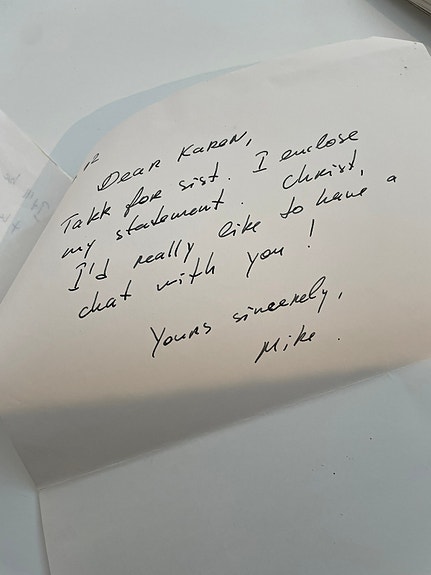 12
Dear Karen,
Takk for sist. I enclose
my statement. Christ,
I'd really like to have a
chat with you!
Yours sincerely,
Mike.